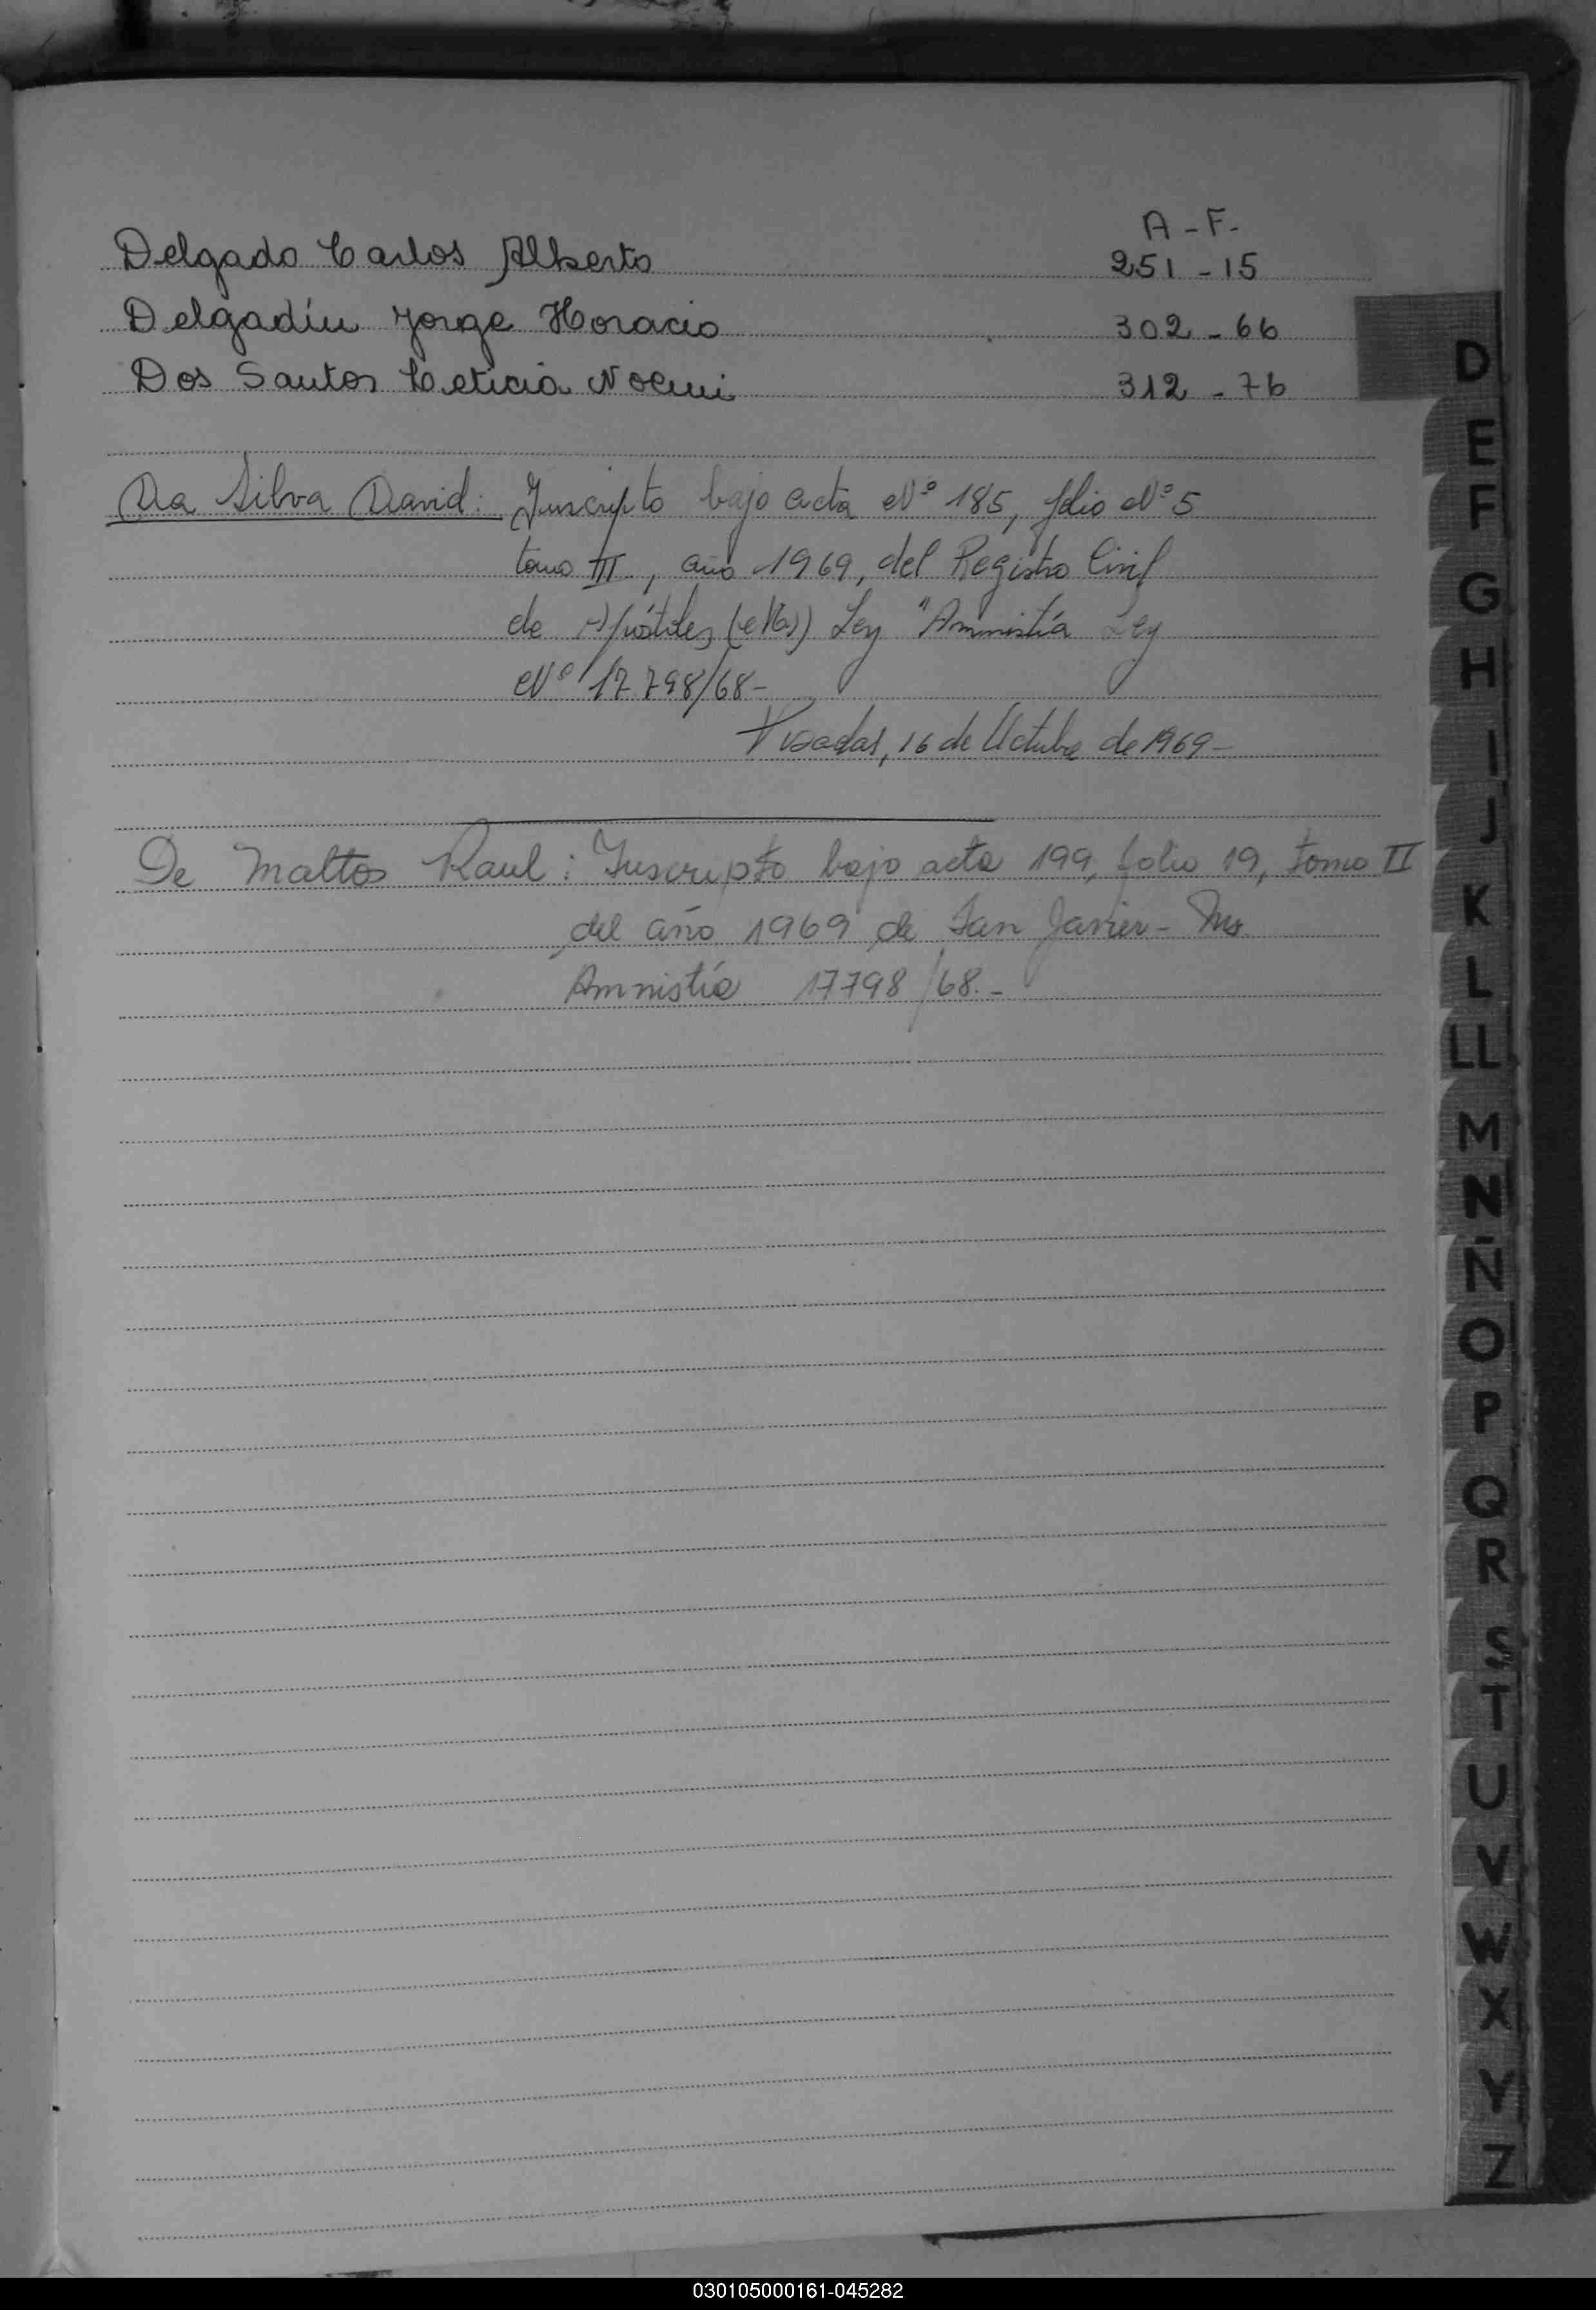 A - F.
Delgado Carlos Alberto 251 - 15
Delgadin Jorge Horacio 302 - 66
Dos Santos Leticia Noemi 312 - 76
Da Silva David: Inscripto bajo acta Nº 185, folio Nº 5
tomo III, año 1969, del Registro Civil
de Apóstoles (Mos) Ley "Amnistía Ley
Nº 17.798/68-
Posadas, 16 de Octubre de 1969-
De Mattos Raul: Inscripto bajo acta 199, folio 19, tomo II
del año 1969 de San Javier - Ms.
Amnistía 17798/68.-
D
E
F
G
H
I
J
K
L
LL
M
N
Ñ
O
P
Q
R
S
T
U
V
W
X
Y
Z
030105000161-045282